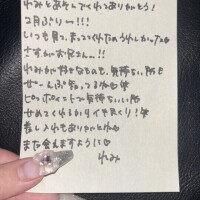 れみとあそんでくれてありがとう!
2月ぶりー!!!
いつも見て、まっててくれたのうれしかった
さすがお兄さん…!!
れみが好きなものも、気持ちい所も
ぜーんぶ知ってるね
ピンポイントで気持ちいい所
せめてくれるから
差し入れもありがとね
また会えますように♡
れみ